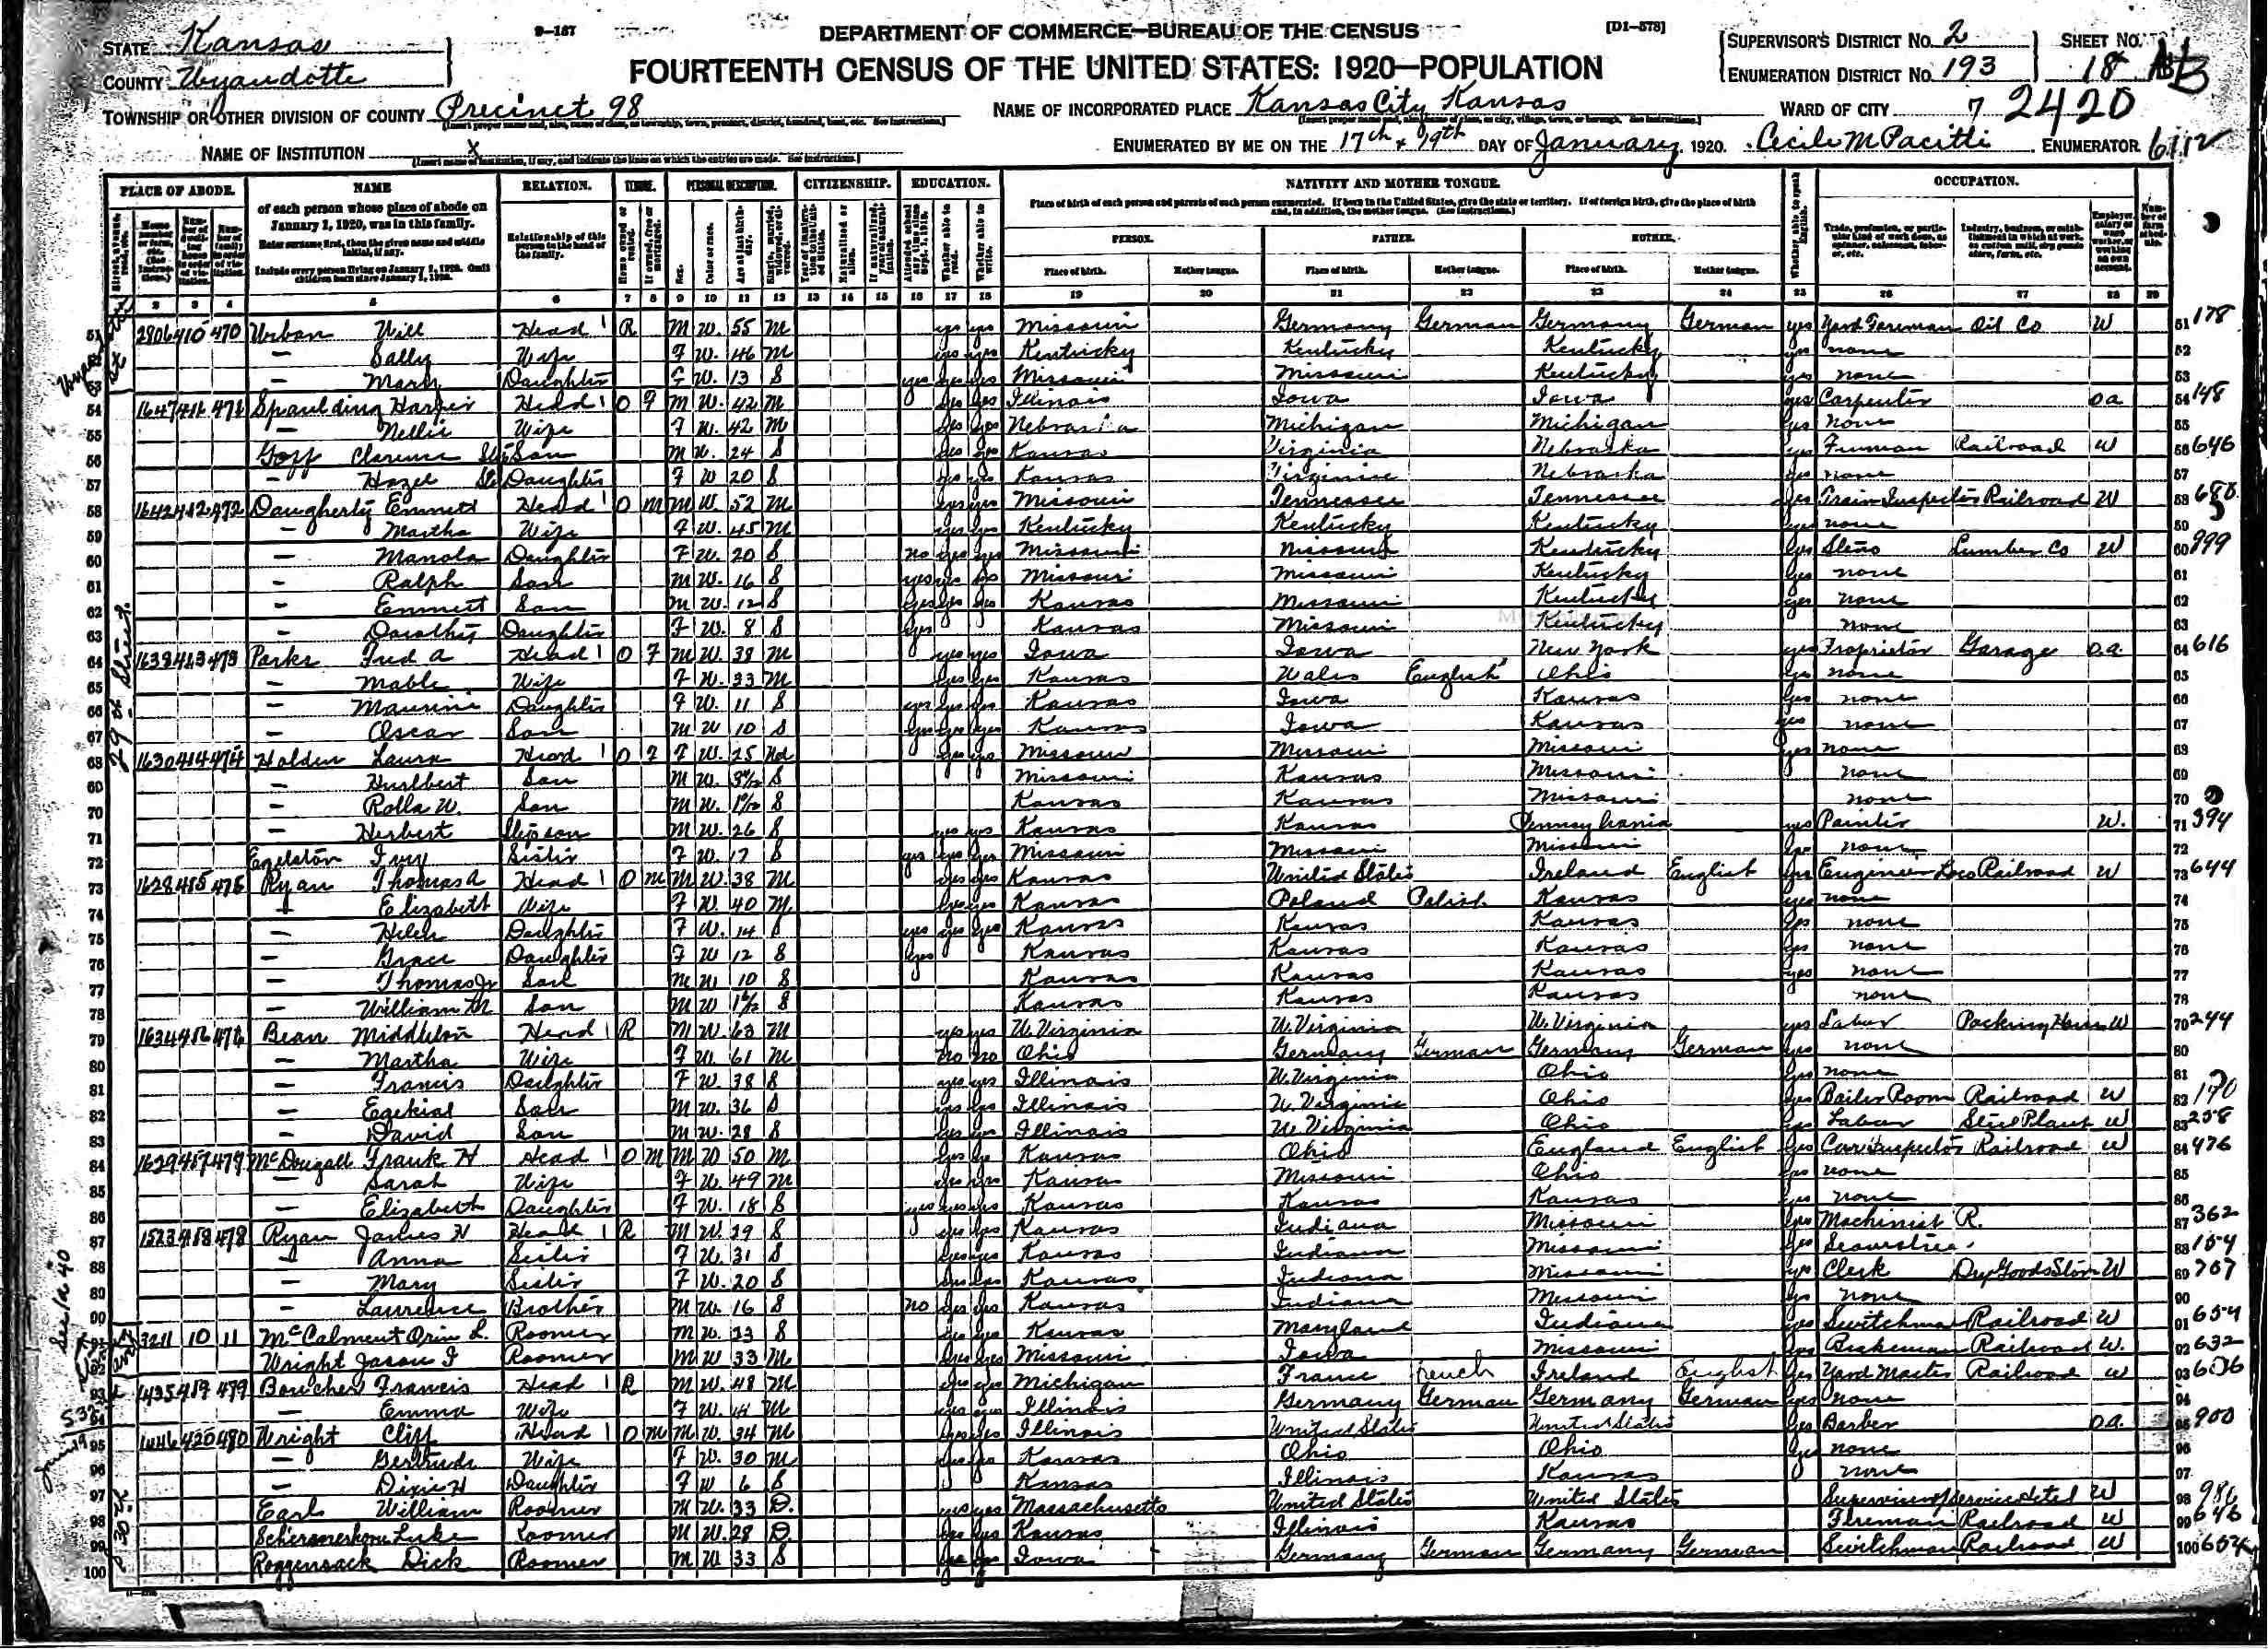 9-167
DEPARTMENT OF COMMERCE—BUREAU OF THE CENSUS
[D1-578]
STATE Kansas
COUNTY Wyandotte
FOURTEENTH CENSUS OF THE UNITED STATES: 1920—POPULATION
SUPERVISOR'S DISTRICT No. 2
ENUMERATION DISTRICT No. 193
SHEET No. 18 B
TOWNSHIP OR OTHER DIVISION OF COUNTY Precinct 98
NAME OF INCORPORATED PLACE Kansas City Kansas
WARD OF CITY 7 2420
NAME OF INSTITUTION X
ENUMERATED BY ME ON THE 17th & 19th DAY OF January, 1920. Cecile M Pacitti, ENUMERATOR 6112
PLACE OF ABODE. NAME RELATION. TENURE. PERSONAL DESCRIPTION. CITIZENSHIP. EDUCATION. NATIVITY AND MOTHER TONGUE. OCCUPATION.
of each person whose place of abode on January 1, 1920, was in this family.
Enter surname first, then the given name and middle initial, if any.
Include every person living on January 1, 1920. Omit children born since January 1, 1920.
Relationship of this person to the head of the family.
Place of birth of each person and parents of each person enumerated. If born in the United States, give the state or territory. If of foreign birth, give the place of birth and, in addition, the mother tongue. (See Instructions.)
PERSON. FATHER. MOTHER.
Place of birth. Mother tongue. Place of birth. Mother tongue. Place of birth. Mother tongue.
2 3 4 5 6 7 8 9 10 11 12 13 14 15 16 17 18 19 20 21 22 23 24 25 26 27 28 29
51 2806 410 470 Urban Will Head 1 R M W. 55 M yes yes Missouri Germany German Germany German yes Yard Foreman Oil Co W 51 178
52 — Sally Wife F W. 46 M yes yes Kentucky Kentucky Kentucky yes none 52
53 — Mary Daughter F W. 13 S yes yes yes Missouri Missouri Kentucky yes none 53
54 1647 411 471 Spaulding Harper Head 1 O F M W. 42 M yes yes Illinois Iowa Iowa yes Carpenter O a 54 148
55 — Nellie Wife F W. 42 M yes yes Nebraska Michigan Michigan yes none 55
56 Goff Clarence Step Son M W. 24 S yes yes Kansas Virginia Nebraska yes Fireman Railroad W 56 646
57 — Hazel Daughter F W 20 S yes yes Kansas Virginia Nebraska yes none 57
58 1642 412 472 Daugherty Emmett Head 1 O M M W. 52 M yes yes Missouri Tennessee Tennessee yes Train Inspector Railroad W 58
59 — Martha Wife F W. 45 M yes yes Kentucky Kentucky Kentucky yes none 59
60 — Manola Daughter F W. 20 S no yes yes Missouri Missouri Kentucky yes Steno Lumber Co W 60 899
61 — Ralph Son M W. 16 S yes yes yes Missouri Missouri Kentucky yes none 61
62 — Emmett Son M W. 12 S yes yes yes Kansas Missouri Kentucky yes none 62
63 — Dorothy Daughter F W. 8 S yes Kansas Missouri Kentucky none 63
64 1638 413 473 Parks Fred A Head 1 O F M W. 38 M yes yes Iowa Iowa New York yes Proprietor Garage O.a. 64 616
65 — Mable Wife F W. 33 M yes yes Kansas Wales English Ohio yes none 65
66 — Maurine Daughter F W. 11 S yes yes yes Kansas Iowa Kansas yes none 66
67 — Oscar Son M W 10 S yes yes yes Kansas Iowa Kansas yes none 67
68 1630 414 474 Holden Laura Head 1 O F F W. 25 Wd yes yes Missouri Missouri Missouri yes none 68
69 — Hurlbert Son M W. S Missouri Kansas Missouri none 69
70 — Rolla W. Son M W. S Kansas Kansas Missouri none 70
71 — Herbert Stepson M W. 26 S yes yes Kansas Kansas Pennsylvania yes Painter W. 71 394
72 Egelston Ivy Sister F W. 17 S yes yes yes Missouri Missouri Missouri yes none 72
73 1628 415 475 Ryan Thomas A Head 1 O M M W. 38 M yes yes Kansas United States Ireland English yes Engineer Loco Railroad W 73 644
74 — Elizabeth Wife F W. 40 M yes yes Kansas Poland Polish Kansas yes none 74
75 — Helen Daughter F W. 14 S yes yes yes Kansas Kansas Kansas yes none 75
76 — Grace Daughter F W 12 S yes Kansas Kansas Kansas yes none 76
77 — Thomas Jr Son M W 10 S Kansas Kansas Kansas yes none 77
78 — William M Son M W S Kansas Kansas Kansas none 78
79 1634 416 476 Bean Middleton Head 1 R M W. 63 M yes yes W. Virginia W. Virginia W. Virginia yes Labor Packing House W 79 244
80 — Martha Wife F W. 61 M no no Ohio Germany German Germany German yes none 80
81 — Francis Daughter F W. 38 S yes yes Illinois W. Virginia Ohio yes none 81
82 — Ezekial Son M W. 36 S yes yes Illinois W. Virginia Ohio yes Boiler Room Railroad W 82 190
83 — David Son M W. 28 S yes yes Illinois W. Virginia Ohio yes Labor Steel Plant W 83 258
84 1629 417 477 McDougall Frank H Head 1 O M M W 50 M yes yes Kansas Ohio England English yes Car Inspector Railroad W 84 476
85 — Sarah Wife F W. 49 M yes yes Kansas Missouri Ohio yes none 85
86 — Elizabeth Daughter F W. 18 S yes yes yes Kansas Kansas Kansas yes none 86
87 1523 418 478 Ryan James H Head 1 R M W. 29 S yes yes Kansas Indiana Missouri yes Machinist R. 87 362
88 — Anna Sister F W. 31 S yes yes Kansas Indiana Missouri yes Seamstress 88 154
89 — Mary Sister F W. 20 S yes yes Kansas Indiana Missouri yes Clerk Dry Goods Store W 89 767
90 — Laurence Brother M W. 16 S no yes yes Kansas Indiana Missouri yes none 90
91 3211 10 11 McCalment Orin L. Roomer M W. 23 S yes yes Kansas Maryland Indiana yes Switchman Railroad W 91 654
92 Wright Jason F Roomer M W 33 M yes yes Missouri Iowa Missouri yes Brakeman Railroad W. 92 632
93 1435 419 479 Boucher Francis Head 1 R M W. 48 M yes yes Michigan France French Ireland English yes Yard Master Railroad W 93 606
94 — Emma Wife F W. 41 M yes yes Illinois Germany German Germany German yes none 94
95 1446 420 480 Wright Cliff Head 1 O M M W. 34 M yes yes Illinois United States United States yes Barber O.a. 95 900
96 — Gertrude Wife F W. 30 M yes yes Kansas Ohio Ohio yes none 96
97 — Dixie H Daughter F W 6 S Kansas Illinois Kansas none 97
98 Earl William Roomer M W. 33 D. yes yes Massachusetts United States United States Supervisor of Service Hotel W 98 980
99 Schermerhorn Luke Roomer M W. 28 D. yes yes Kansas Illinois Kansas Fireman Railroad W 99 646
100 Roggensack Dick Roomer M W 33 S yes yes Iowa Germany German Germany German Switchman Railroad W 100 654
29th Street
See 1a 40